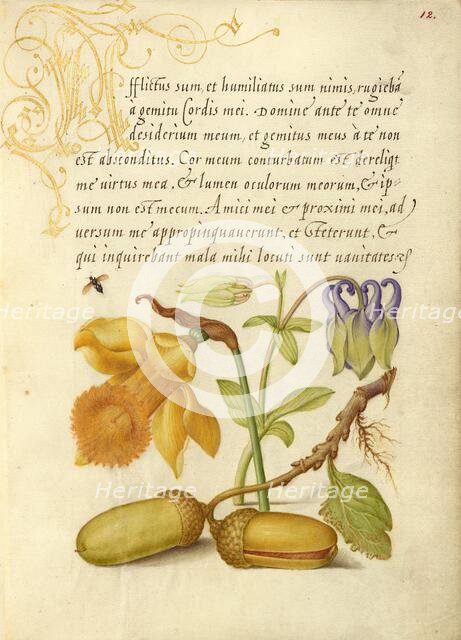 12.
Afflictus sum, et humiliatus sum nimis, rugiebā
à gemitu Cordis mei. Domine ante te omne
desiderium meum, et gemitus meus à te non
est absconditus. Cor meum conturbatum est, dereliqt
me virtus mea, & lumen oculorum meorum, & ip-
sum non est mecum. Amici mei & proximi mei, ad
versum me appropinquaverunt, et steterunt, &
qui inquirebant mala mihi locuti sunt vanitates
Heritage Heritage
Heritage Heritage
Heritage Heritage
Heritage Heritage